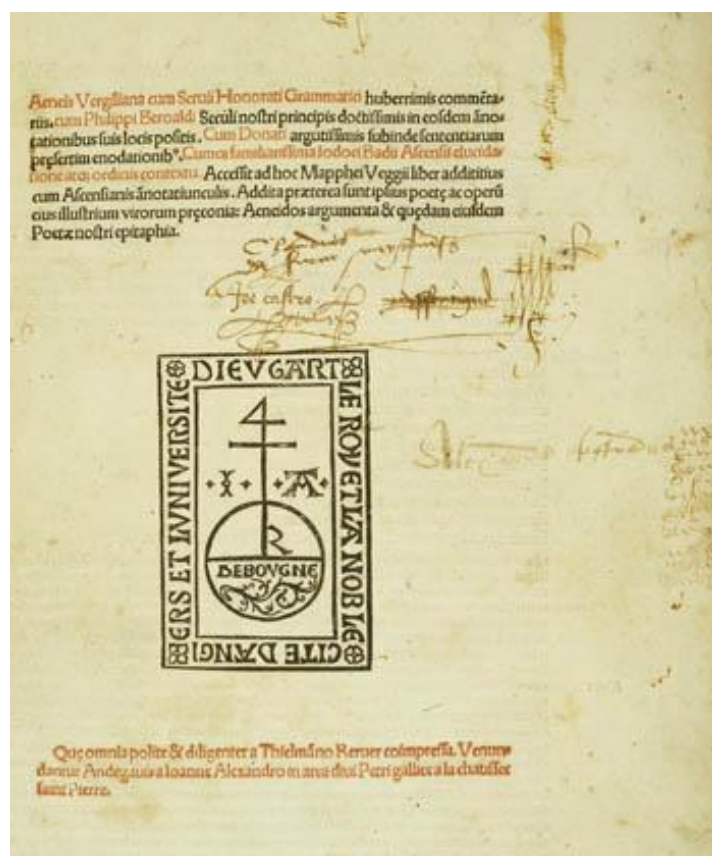 Aeneis Vergiliana cum Seruii Honorati Grammatici huberrimis commēta-
riis, cum Philippi Beroaldi Seculi nostri principis doctissimis in eosdem āno-
tationibus suis locis positis. Cum Donati argutissimis subinde sententiarum
pręsertim enodationib⁹. Cumq; familiarissima Iodoci Badii Ascensii elucida-
tione atq; ordinis contextu. Accessit ad hoc Mapphei Veggii liber addititius
cum Ascensianis ānotatiunculis. Addita præterea sunt ipsius poetę ac operū
eius illustrium virorum pręconia: Aeneidos argumenta & quędam eiusdem
Poetæ nostri epitaphia.
de castro
DIEV GART
LE ROY ET LA NOBLE
CITE DANGI
ERS ET LVNIVERSITE
I A
R
DEBOVGNE
Quę omnia polite & diligenter a Thielmāno Keruer coimpressa. Venun-
dantur Andegauis a Ioanne Alexandro in vico diui Petri gallice a la chaussee
saint Pierre.